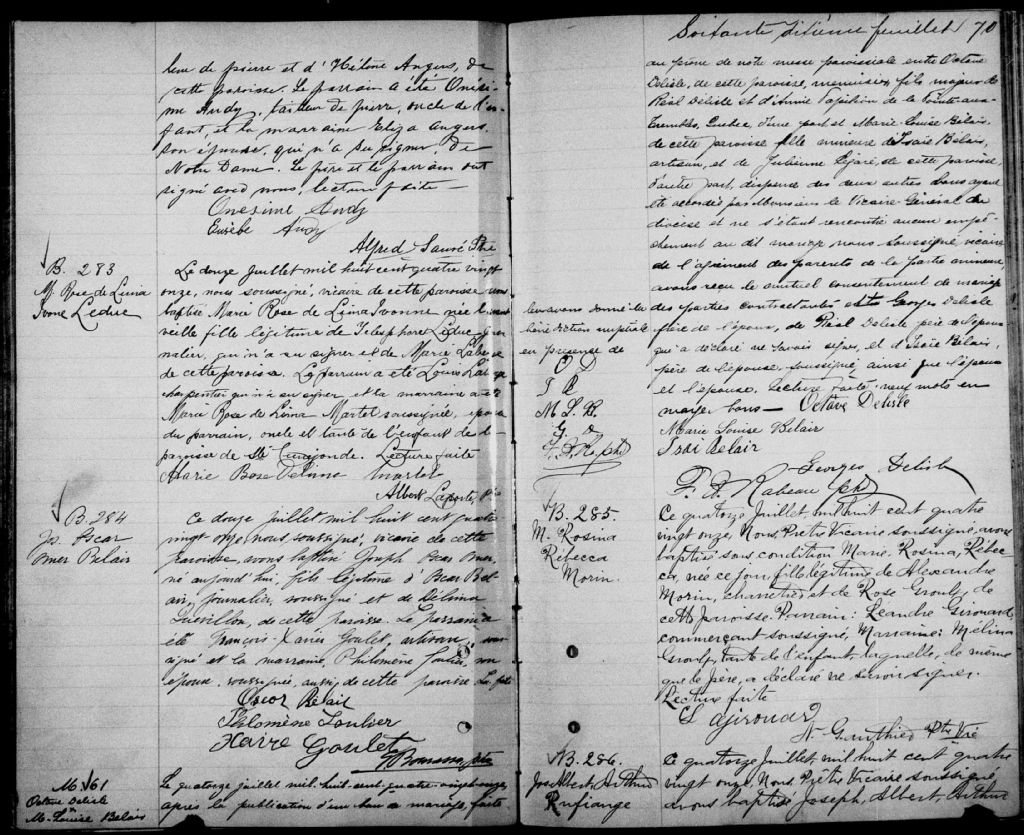 leur de pierre et d'Hélène Angers, de
cette paroisse. Le parrain a été Onési-
me Audy, tailleur de pierre, oncle de l'en-
fant, et la marraine Eliza Angers
son épouse, qui n'a su signer, de
Notre Dame. Le père et le parrain ont
signé avec nous, lecture faite —
Onésime Audy
Eusèbe Audy
Alfred Sauvé Ptre
B. 283
M. Rose de Lima
Ivonne Leduc
Le douze juillet mil huit cent quatre vingt
onze, nous soussigné, vicaire de cette paroisse avons
baptisé Marie Rose de Lima Ivonne née la
veille fille légitime de Telesphore Leduc, jour
nalier, qui n'a su signer et de Marie
de cette paroisse. Le parrain a été Louis
charpentier qui n'a su signer, et la marraine a été
Marie Rose de Lima Martel soussignée, épouse
du parrain, oncle et tante de l'enfant de la
paroisse de Ste Cunégonde. Lecture faite
Marie Rose Delima Martel
Albert Laporte, Ptre
B. 284
Jos. Oscar
Omer Belair
Ce douze juillet mil huit cent quatre
vingt onze, nous soussigné, vicaire de cette
paroisse, avons baptisé Joseph Oscar Omer,
né aujourd'hui, fils légitime d'Oscar Bel
air, journalier, soussigné et de Délima
Quevillon, de cette paroisse. Le parrain a
été François-Xavier Goulet, artisan, sous
signé et la marraine, Philomène Loulier, son
épouse, soussignée, aussi de cette paroisse
Oscar Bélair
Philomène Loulier
Xavire Goulet
M. 61
Octave Delisle
&
M. Louise Belair
Le quatorze juillet mil huit cent quatre-vingt-onze,
après la publication d'un ban de mariage, faite
Soixante dixième feuillet 70
au prône de notre messe paroissiale entre Octave
Delisle, de cette paroisse, menuisier, fils majeur de
Réal Delisle et d'Annie Papillon de la Pointe-aux-
Trembles, Quebec, d'une part, et Marie-Louise Bélair,
de cette paroisse, fille mineure d'Isaïe Bélair,
artisan, et de Julienne Légaré, de cette paroisse,
d'autre part, dispense des deux autres bans ayant
été accordée par Monsieur le Vicaire Général du
diocèse et ne s'étant rencontré aucun empê-
chement au dit mariage nous soussigné, vicaire
de l'agrément des parents de la partie mineure,
avons reçu le mutuel consentement de mariage
des parties contractantes et Georges Delisle
frère de l'époux, de Réal Delisle père de l'époux
qui a déclaré ne savoir signer, et d'Isaïe Bélair,
père de l'épouse, soussigné, ainsi que l'époux
et l'épouse. Lecture faite. neuf mots en
marge bons — Octave Delisle
leur avons donné la
bénédiction nuptiale
en présence de
O D
I B
M L B
G D
F. A. R. ptr
Marie Louise Belair
Isai Belair
Georges Delisle
F. A. Rabeau ptr
B. 285.
M. Rosina
Rébecca
Morin.
Ce quatorze Juillet, mil huit cent quatre
vingt onze, Nous, Prêtre Vicaire soussigné, avons
baptisé sous condition Marie, Rosina, Rébec
ca, née ce jour, fille légitime de Alexandre
Morin, charretier, et de Rose Groulx, de
cette paroisse. Parrain: Léandre Girouard
commerçant soussigné, Marraine: Mélina
Groulx, tante de l'enfant, laquelle, de même
que le père, a déclaré ne savoir signer.
Lecture faite
L a girouard
N. Gauthier Ptre Vic
B. 286.
Jos Albert Arthur
Rufiange
Ce quatorze Juillet, mil huit cent quatre
vingt onze, Nous, Prêtre Vicaire soussigné,
avons baptisé Joseph, Albert, Arthur